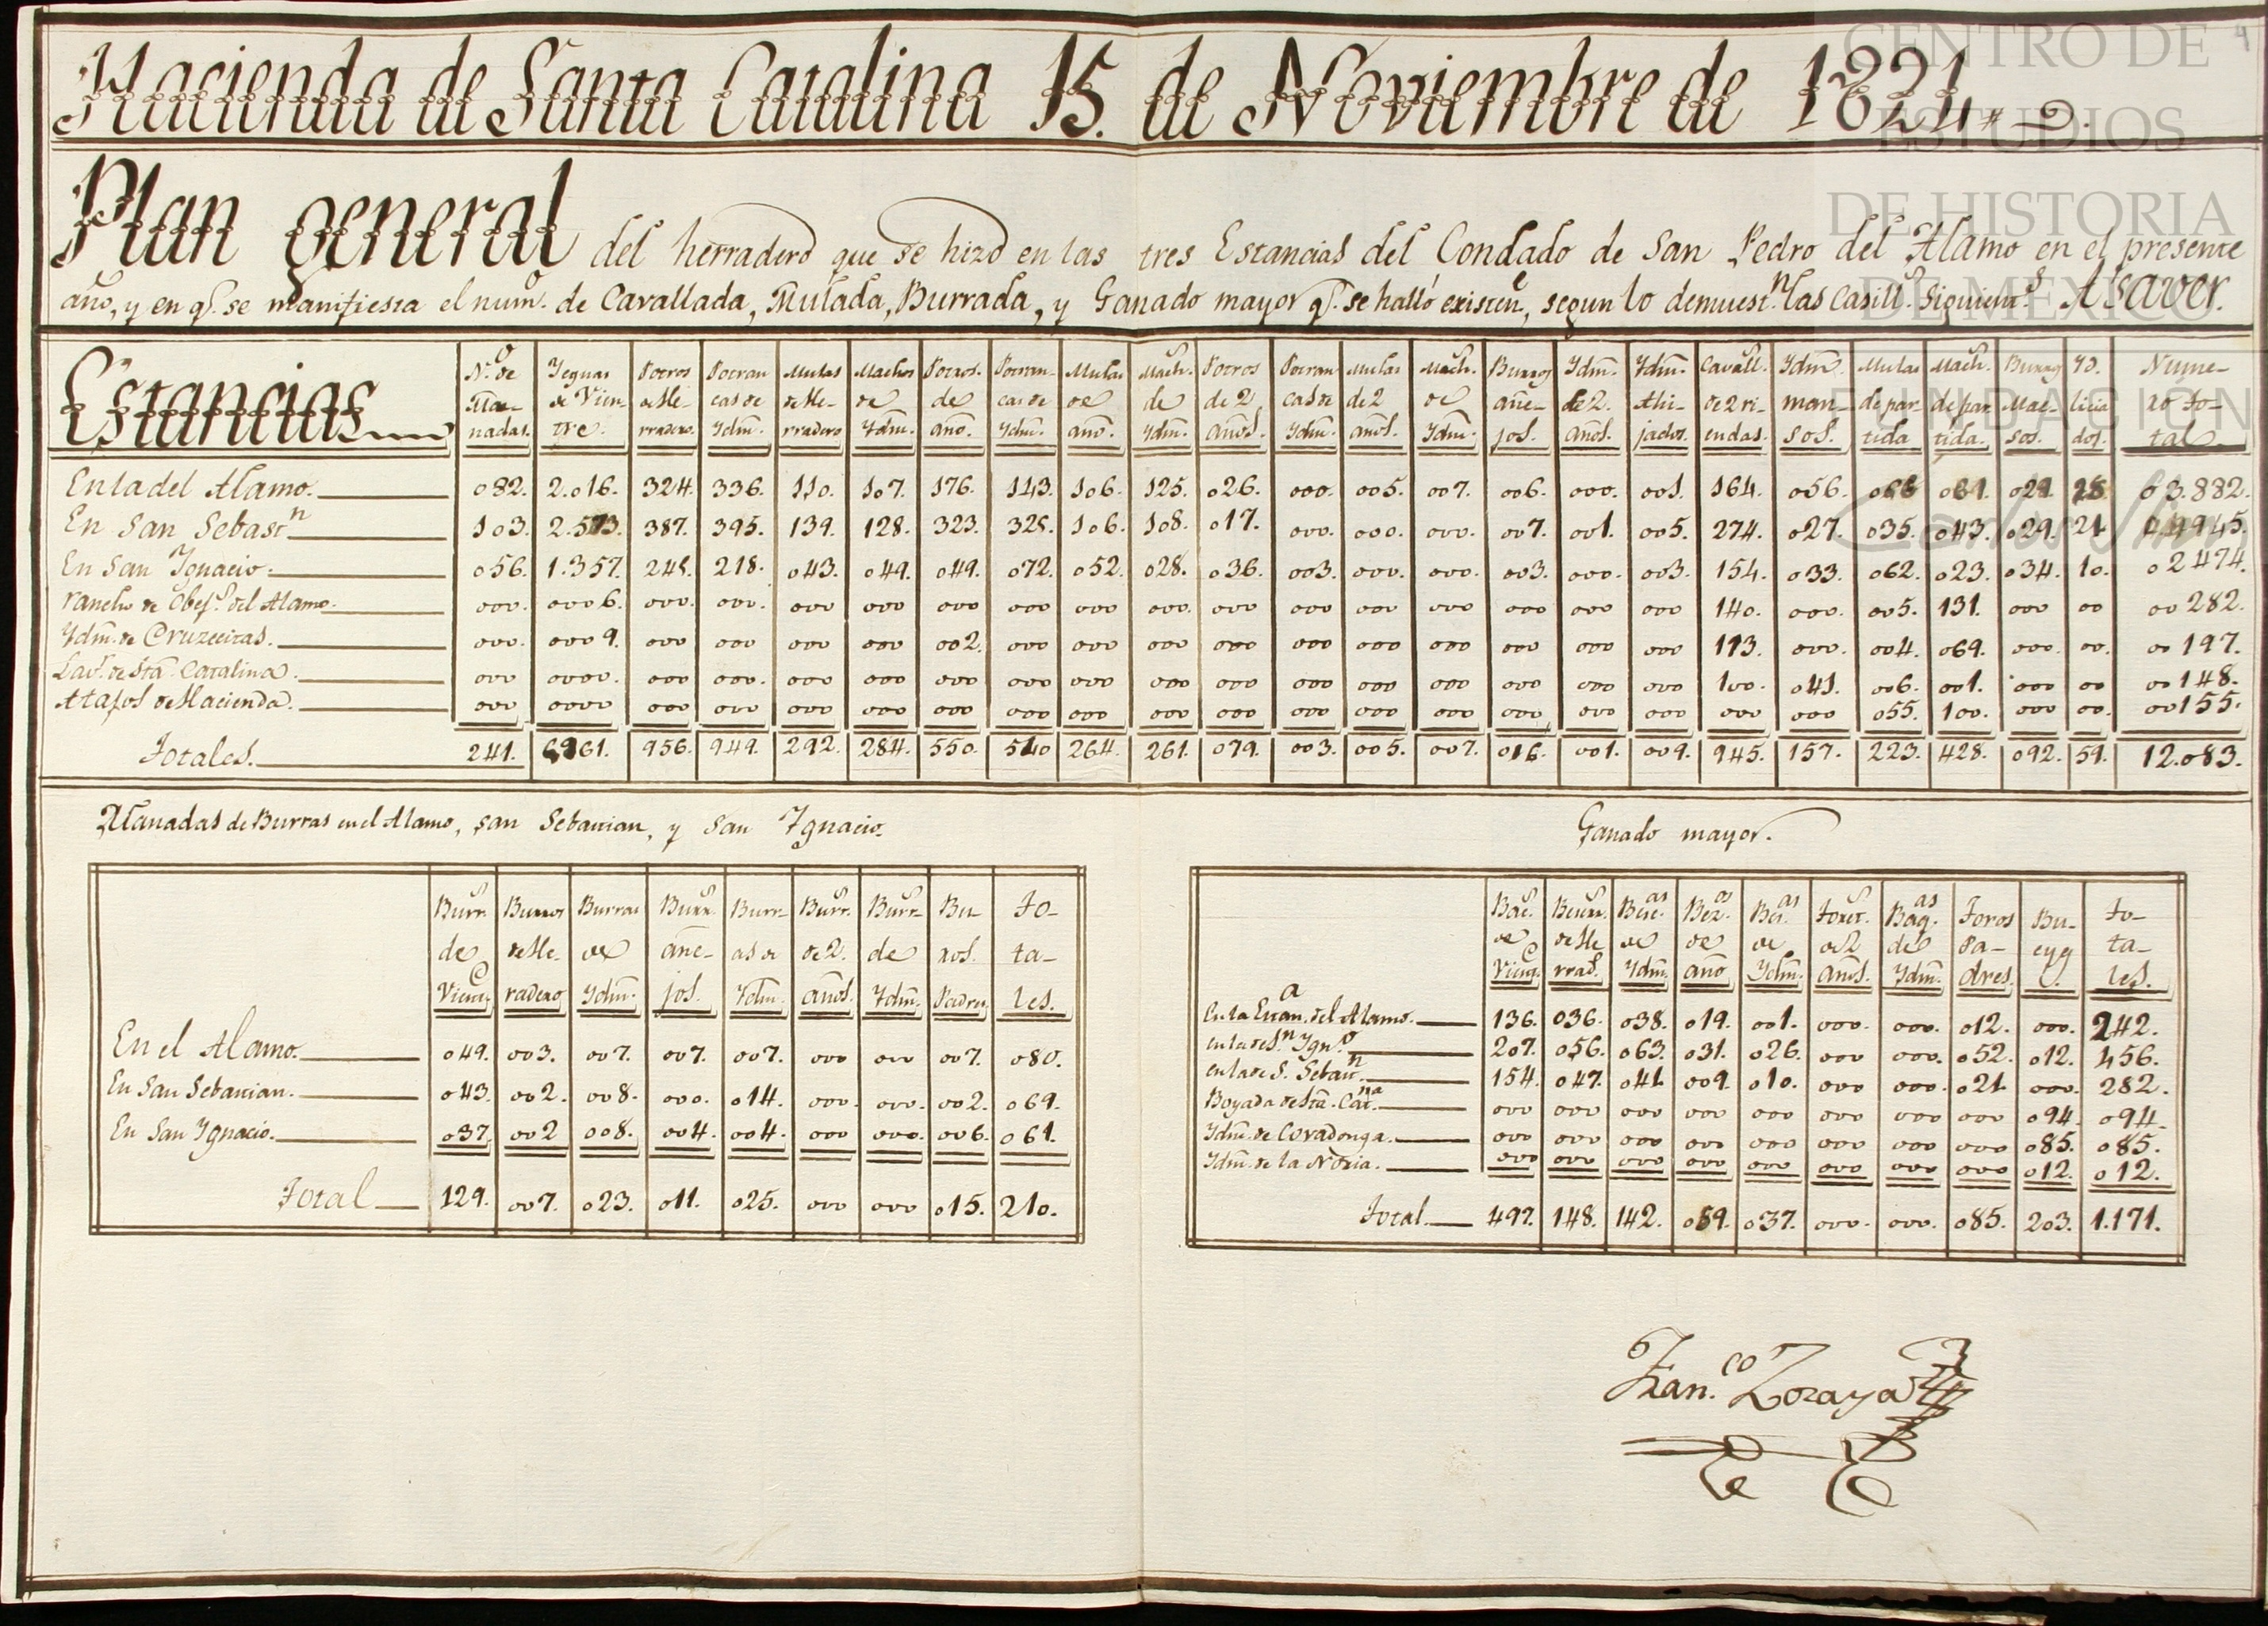 Hacienda de Santa Catalina 15. de Noviembre de 1821.
Plan general del herradero que se hizo en las tres Estancias del Condado de San Pedro del Alamo en el presente
año, y en q.e se manifiesta el num.o de Cavallada, Mulada, Burrada, y Ganado mayor q.e se halló existen.e, segun lo demuest.n las Casill.s Siguient.s A saver.
Estancias | N.o de Manadas. | Yeguas de Vientre. | Potros de Herradero. | Potrancas de Ydm. | Mulas de Herradero | Machos de Ydm. | Potros. de año. | Potrancas de Ydm. | Mulas de año. | Mach.s de Ydm. | Potros de 2 años. | Potrancas de Ydm. | Mulas de 2 años. | Mach.s de Ydm. | Burros añejos. | Ydm. de 2. años. | Ydm. Ahijados. | Cavall.s de 2 riendas. | Ydm. mansos. | Mulas de partida | Mach.s de partida. | Burros Maesos. | Yd. liciados. | Numero total.
En la del Alamo. 082. 2.016. 324. 336. 110. 107. 176. 143. 106. 125. 026. 000. 005. 007. 006. 000. 001. 164. 056. 061. 28 03.882.
En San Sebast.n 103. 2.573. 387. 395. 139. 128. 323. 325. 106. 108. 017. 000. 000. 000. 007. 001. 005. 274. 027. 035. 043. 029. 21 4945.
En San Ygnacio. 056. 1.357. 245. 218. 043. 049. 049. 072. 052. 028. 036. 003. 000. 000. 003. 000. 003. 154. 033. 062. 023. 034. 10. 02474.
rancho de Obej.s del Alamo. 000. 0006. 000. 000. 000 000 000 000 000 000. 000 000 000 000 000 000 000 140. 000. 005. 131. 000 00 00282.
Ydm. de Cruzecitas. 000. 0009. 000 000 000 000 002. 000 000 000 000 000 000 000 000 000 000 113. 000. 004. 069. 000. 00. 00197.
Lav.r de Sta. Catalina. 000 0000. 000 000. 000 000 000 000 000 000 000 000 000 000 000 000 000 100. 041. 006. 001. 000 00 00148.
Atajos de Hacienda. 000 0000 000 000 000 000 000 000 000 000 000 000 000 000 000 000 000 000 000 055. 100. 000 00. 00155.
Totales. 241. 6961. 956. 949. 292. 284. 550. 540 264. 261. 079. 003. 005. 007. 016. 001. 009. 945. 157. 223. 428. 092. 59. 12.083.
Manadas de Burras en el Alamo, san Sebastian, y San Ygnacio.
Burr.s de Vient.e | Burros de Herradero | Burras de Ydm. | Burr.s añejos. | Burras de Ydm. | Burr.s de 2. años. | Burr.s de Ydm. | Burros. Padres | Totales.
En el Alamo. 049. 003. 007. 007. 007. 000 000 007. 080.
En San Sebastian. 043. 002. 008. 000. 014. 000. 000. 002. 069.
En San Ygnacio. 037. 002 008. 004. 004. 000 000. 006. 061.
Total 129. 007. 023. 011. 025. 000 000 015. 210.
Ganado mayor.
Bac.s de Vient.e | Becerr.s de Herrad.o | Bec.as de Ydm. | Bez.os de año | Bez.as de Ydm. | Toret.s de 2 años. | Baq.as de Ydm. | Toros Padres. | Bueyes | Totales.
En la Estan.a del Alamo. 136. 036. 038. 019. 001. 000. 000. 012. 000. 242.
en la de S.n Ygn.o 207. 056. 063. 031. 026. 000 000. 052. 012. 456.
en la de S. Sebast.n 154. 047. 041. 009. 010. 000 000. 021. 000. 282.
Boyada de Sta. Cat.na 000 000 000 000 000 000 000 000 094. 094.
Ydm. de Covadonga. 000 000 000 000 000 000 000 000 085. 085.
Ydm. de la Noria. 000 000 000 000 000 000 000 000 012. 012.
Total. 497. 148. 142. 059. 037. 000. 000. 085. 203. 1.171.
Fran.co Zoraya
CENTRO DE
ESTUDIOS
DE HISTORIA
DE MEXICO
FUNDACION
Carlos Slim